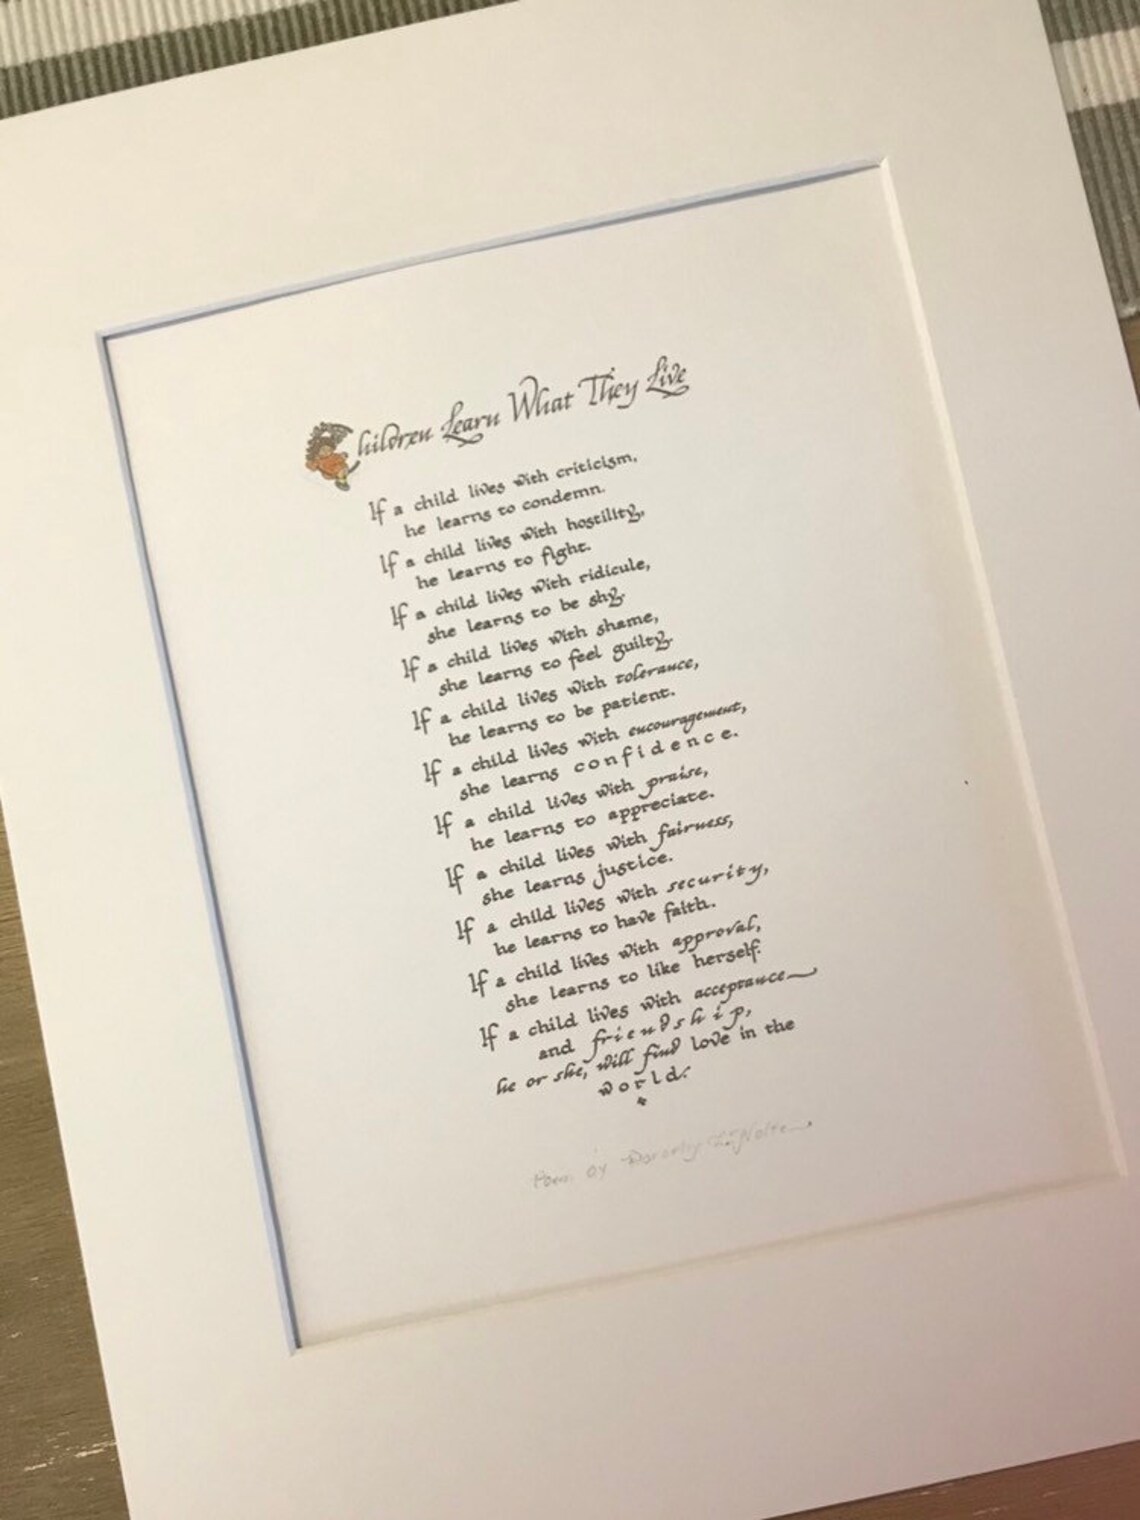 Children Learn What They Live
If a child lives with criticism,
he learns to condemn.
If a child lives with hostility,
he learns to fight.
If a child lives with ridicule,
she learns to be shy.
If a child lives with shame,
she learns to feel guilty.
If a child lives with tolerance,
he learns to be patient.
If a child lives with encouragement,
she learns confidence.
If a child lives with praise,
he learns to appreciate.
If a child lives with fairness,
she learns justice.
If a child lives with security,
he learns to have faith.
If a child lives with approval,
she learns to like herself.
If a child lives with acceptance
and friendship,
he or she, will find love in the
world.
Poem by Dorothy L. Nolte